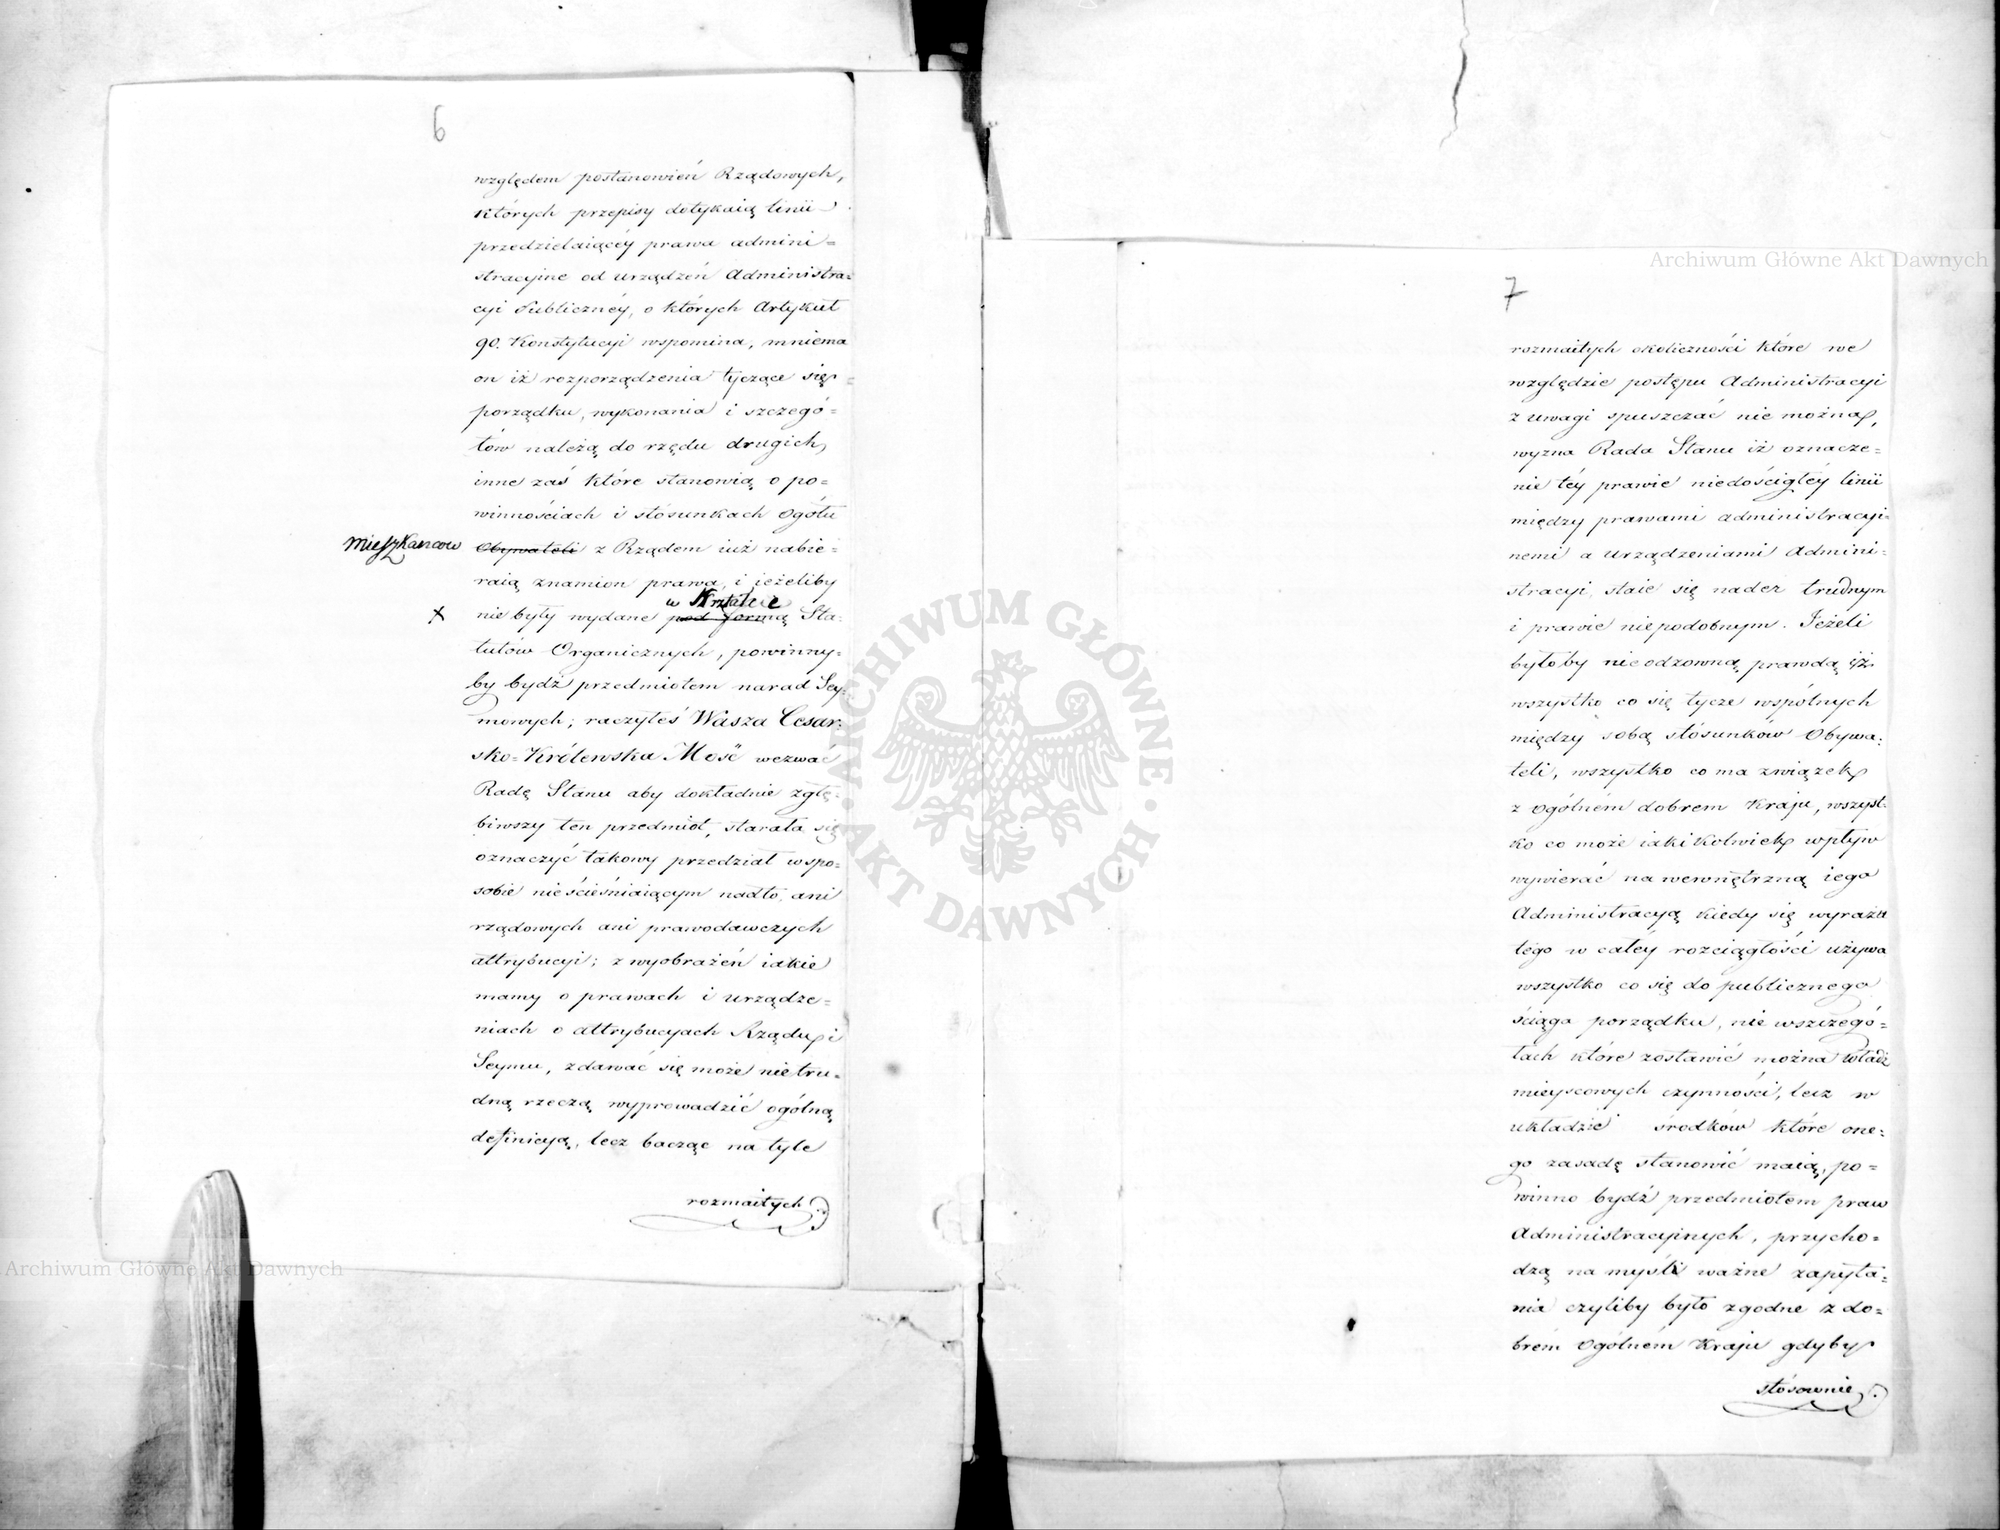 6
względem postanowień Rządowych,
których przepisy dotykaią linii
przedzielaiącéy prawa admini=
stracyine od urządzeń Administra=
cyi Publicznéy, o których Artykuł
90. Konstytucyi wspomina, mniema
on iż rozporządzenia tyczące się
porządku, wykonania i szczegó=
łów należą do rzędu drugich,
inne zaś które stanowią o po=
winnościach i stósunkach ogółu
Mieszkańcow Obywateli z Rządem iuż nabie=
raią znamion prawa, i ieżeliby
w Krztałcie
x nie były wydane pod formą Sta=
tutów Organicznych, powinny=
by bydź przedmiotem narad Sey=
mowych; raczyłeś Wasza Cesar=
sko=Królewska Mość wezwać
Radę Stanu aby dokładnie zgłę=
biwszy ten przedmiot, starała się
oznaczyć takowy przedział w spo=
sobie nieścieśniaiącym nadto, ani
rządowych ani prawodawczych
attrybucyi; z wyobrażeń iakie
mamy o prawach i urządze=
niach o attrybucyach Rządu i
Seymu, zdawać się może nietru=
dną rzeczą wyprowadzić ogólną
definicyą, lecz bacząc na tyle
rozmaitych
7
rozmaitych okoliczności które we
względzie postępu Administracyi
z uwagi spuszczać nie można,
wyzna Rada Stanu iż oznacze=
nie téy prawie niedościgłéy linii
między prawami administracyi=
nemi a urządzeniami Admini=
stracyi, staie się nader trudnym
i prawie niepodobnym. Jeżeli
byłoby nieodzowną prawdą iż
wszystko co się tycze wspólnych
między sobą stósunków Obywa=
teli, wszystko co ma związek
z ogólném dobrem Kraju, wszyst=
ko co może iakikolwiek wpływ
wywierać na wewnętrzną iego
Administracyą kiedy się wyrazu
tego w całéy rozciągłości używa
wszystko co się do publicznego
ściąga porządku, nie w szczegó=
łach które zostawić można Władz
mieyscowych czynności, lecz w
układzie środków które one=
go zasadę stanowić maią, po=
winno bydź przedmiotem praw
Administracyinych, przycho=
dzą na myśl ważne zapyta=
nia czyliby było zgodne z do=
brem ogólném Kraju gdyby
stósownie
Archiwum Główne Akt Dawnych
ARCHIWUM GŁÓWNE · AKT DAWNYCH ·
Archiwum Główne Akt Dawnych